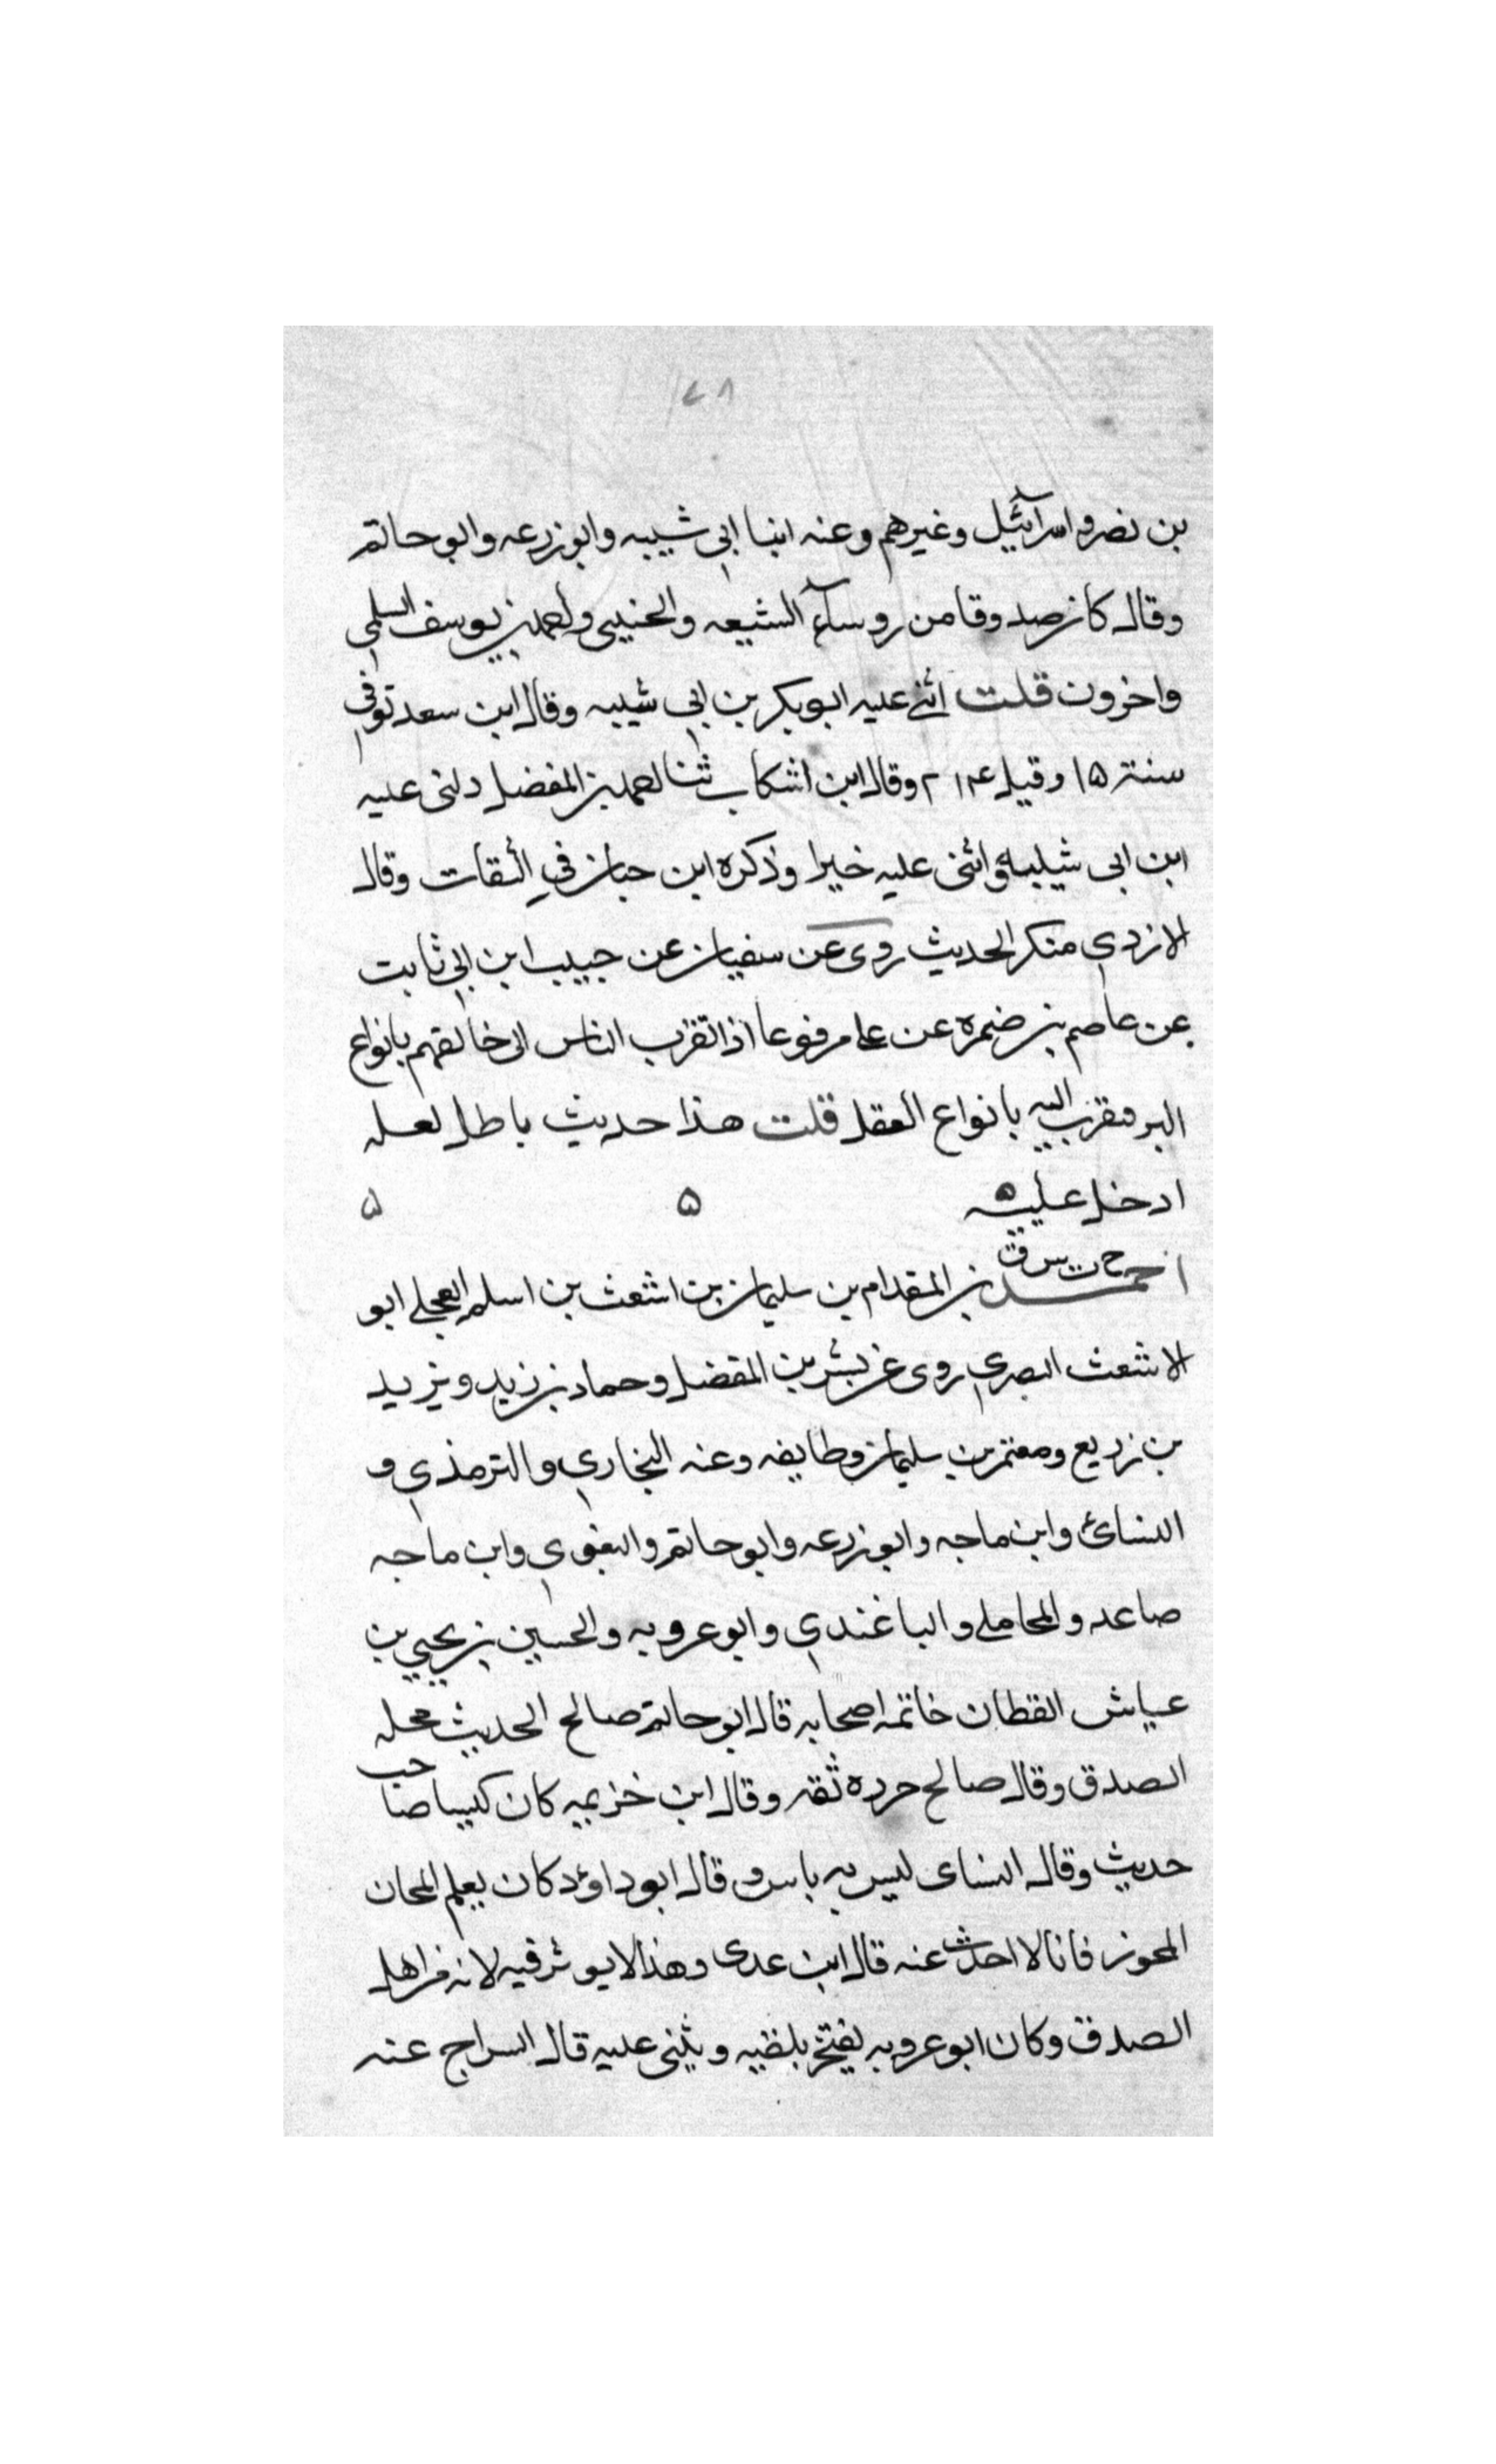 ٧٨
بن نصر واسرآئيل وغيرهم وعنه ابنا ابي شيبه وابوزرعه وابوحاتم
وقال كان صدوقا من روسآء الشيعه والحنينى واحمد بن يوسف السلمي
واخرون قلت اثنى عليه ابوبكر بن ابي شيبه وقال ابن سعد توفي
سنة ۱۵ وقيل ۲۱۴ وقال ابن اشكاب ثنا احمد بن المفضل دلنى عليه
ابن ابى شيبه واثنى عليه خيرا وذكره ابن حبان في الثقات وقال
الازدي منكر الحديث روى عن سفيان عن حبيب ابن ابي ثابت
عن عاصم بن ضمره عن على مرفوعا اذا تقرب الناس الى خالقهم بانواع
البر فتقرب اليه بانواع العقل قلت هذا حديث باطل لعله
ادخل عليه ۵ ۵ ۵
خ ت س ق
احمد بن المقدام بن سليمان بن اشعث بن اسلم العجلي ابو
الاشعث البصري روى عن بشر بن المفضل وحماد بن زيد ويزيد
بن زريع ومعتمر بن سليمان وطايفه وعنه البخاري والترمذي و
النسائ وابن ماجه وابوزرعه وابوحاتم والبغوي وابن ماجه
صاعد والمحاملي والباغندي وابوعروبه والحسين بن يحيي بن
عياش القطان خاتمه اصحابه قال ابوحاتم صالح الحديث محله
الصدق وقال صالح جزره ثقه وقال ابن خزيمه كان كيسا صاحب
حديث وقال النساى ليس به باس وقال ابوداؤد كان يعلم المجان
المجون فانا لا احدث عنه قال ابن عدى وهذا لا يوثر فيه لانه من اهل
الصدق وكان ابوعروبه يفتخر بلقيه ويثنى عليه قال السراج عنه